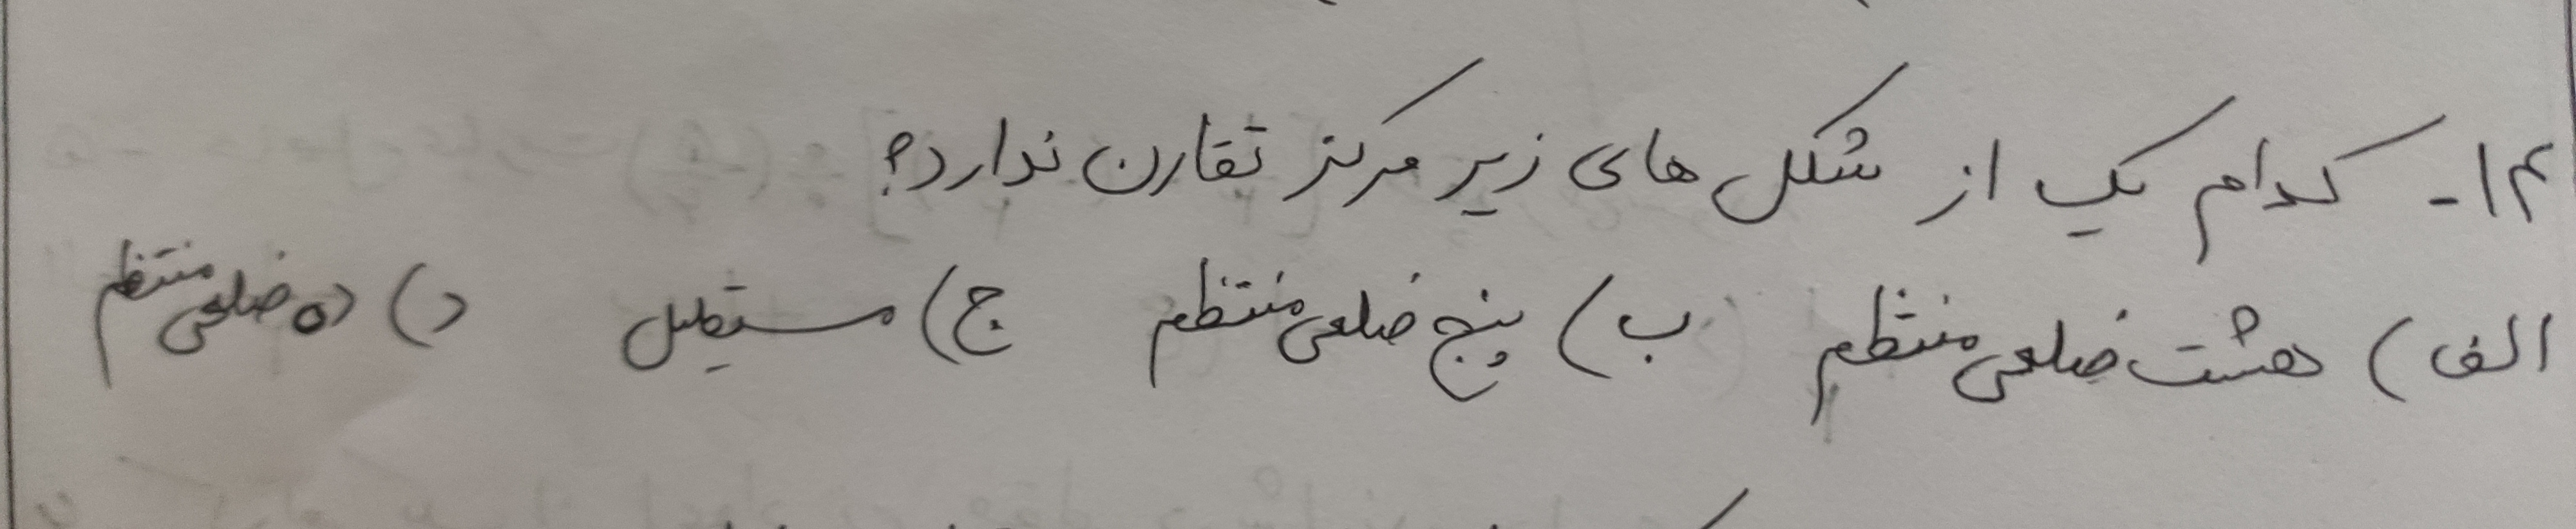 ۱۴- کدام یک از شکل های زیر مرکز تقارن ندارد؟
الف) هشت ضلعی منتظم ب) پنج ضلعی منتظم ج) مستطیل د) ده ضلعی منتظم